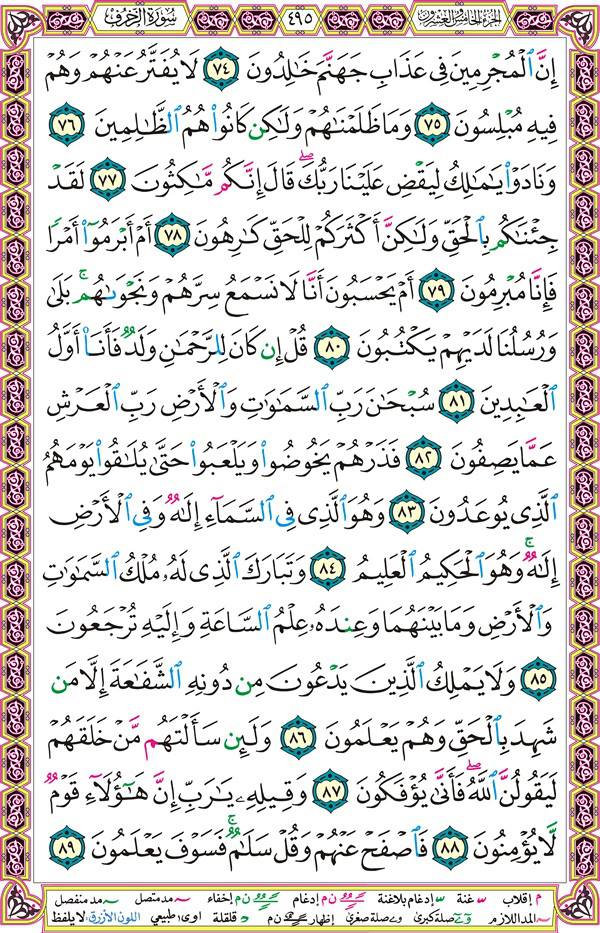 الجزء الخامس والعشرون ٤٩٥ سورة الزخرف
إِنَّ ٱلْمُجْرِمِينَ فِى عَذَابِ جَهَنَّمَ خَٰلِدُونَ ٧٤ لَا يُفَتَّرُ عَنْهُمْ وَهُمْ
فِيهِ مُبْلِسُونَ ٧٥ وَمَا ظَلَمْنَٰهُمْ وَلَٰكِن كَانُوا۟ هُمُ ٱلظَّٰلِمِينَ ٧٦
وَنَادَوْا۟ يَٰمَٰلِكُ لِيَقْضِ عَلَيْنَا رَبُّكَ ۖ قَالَ إِنَّكُم مَّٰكِثُونَ ٧٧ لَقَدْ
جِئْنَٰكُم بِٱلْحَقِّ وَلَٰكِنَّ أَكْثَرَكُمْ لِلْحَقِّ كَٰرِهُونَ ٧٨ أَمْ أَبْرَمُوٓا۟ أَمْرًا
فَإِنَّا مُبْرِمُونَ ٧٩ أَمْ يَحْسَبُونَ أَنَّا لَا نَسْمَعُ سِرَّهُمْ وَنَجْوَىٰهُم ۚ بَلَىٰ
وَرُسُلُنَا لَدَيْهِمْ يَكْتُبُونَ ٨٠ قُلْ إِن كَانَ لِلرَّحْمَٰنِ وَلَدٌ فَأَنَا۠ أَوَّلُ
ٱلْعَٰبِدِينَ ٨١ سُبْحَٰنَ رَبِّ ٱلسَّمَٰوَٰتِ وَٱلْأَرْضِ رَبِّ ٱلْعَرْشِ
عَمَّا يَصِفُونَ ٨٢ فَذَرْهُمْ يَخُوضُوا۟ وَيَلْعَبُوا۟ حَتَّىٰ يُلَٰقُوا۟ يَوْمَهُمُ
ٱلَّذِى يُوعَدُونَ ٨٣ وَهُوَ ٱلَّذِى فِى ٱلسَّمَآءِ إِلَٰهٌ وَفِى ٱلْأَرْضِ
إِلَٰهٌ ۚ وَهُوَ ٱلْحَكِيمُ ٱلْعَلِيمُ ٨٤ وَتَبَارَكَ ٱلَّذِى لَهُۥ مُلْكُ ٱلسَّمَٰوَٰتِ
وَٱلْأَرْضِ وَمَا بَيْنَهُمَا وَعِندَهُۥ عِلْمُ ٱلسَّاعَةِ وَإِلَيْهِ تُرْجَعُونَ
٨٥ وَلَا يَمْلِكُ ٱلَّذِينَ يَدْعُونَ مِن دُونِهِ ٱلشَّفَٰعَةَ إِلَّا مَن
شَهِدَ بِٱلْحَقِّ وَهُمْ يَعْلَمُونَ ٨٦ وَلَئِن سَأَلْتَهُم مَّنْ خَلَقَهُمْ
لَيَقُولُنَّ ٱللَّهُ ۖ فَأَنَّىٰ يُؤْفَكُونَ ٨٧ وَقِيلِهِۦ يَٰرَبِّ إِنَّ هَٰٓؤُلَآءِ قَوْمٌ
لَّا يُؤْمِنُونَ ٨٨ فَٱصْفَحْ عَنْهُمْ وَقُلْ سَلَٰمٌ ۚ فَسَوْفَ يَعْلَمُونَ ٨٩
م إقلاب غنة إدغام بلاغنة ن م إدغام ن م إخفاء مد متصل مد منفصل
المد اللازم صلة كبرى صلة صغرى إظهار ن م قلقلة اوى: طبيعي اللون الأزرق: لا يلفظ